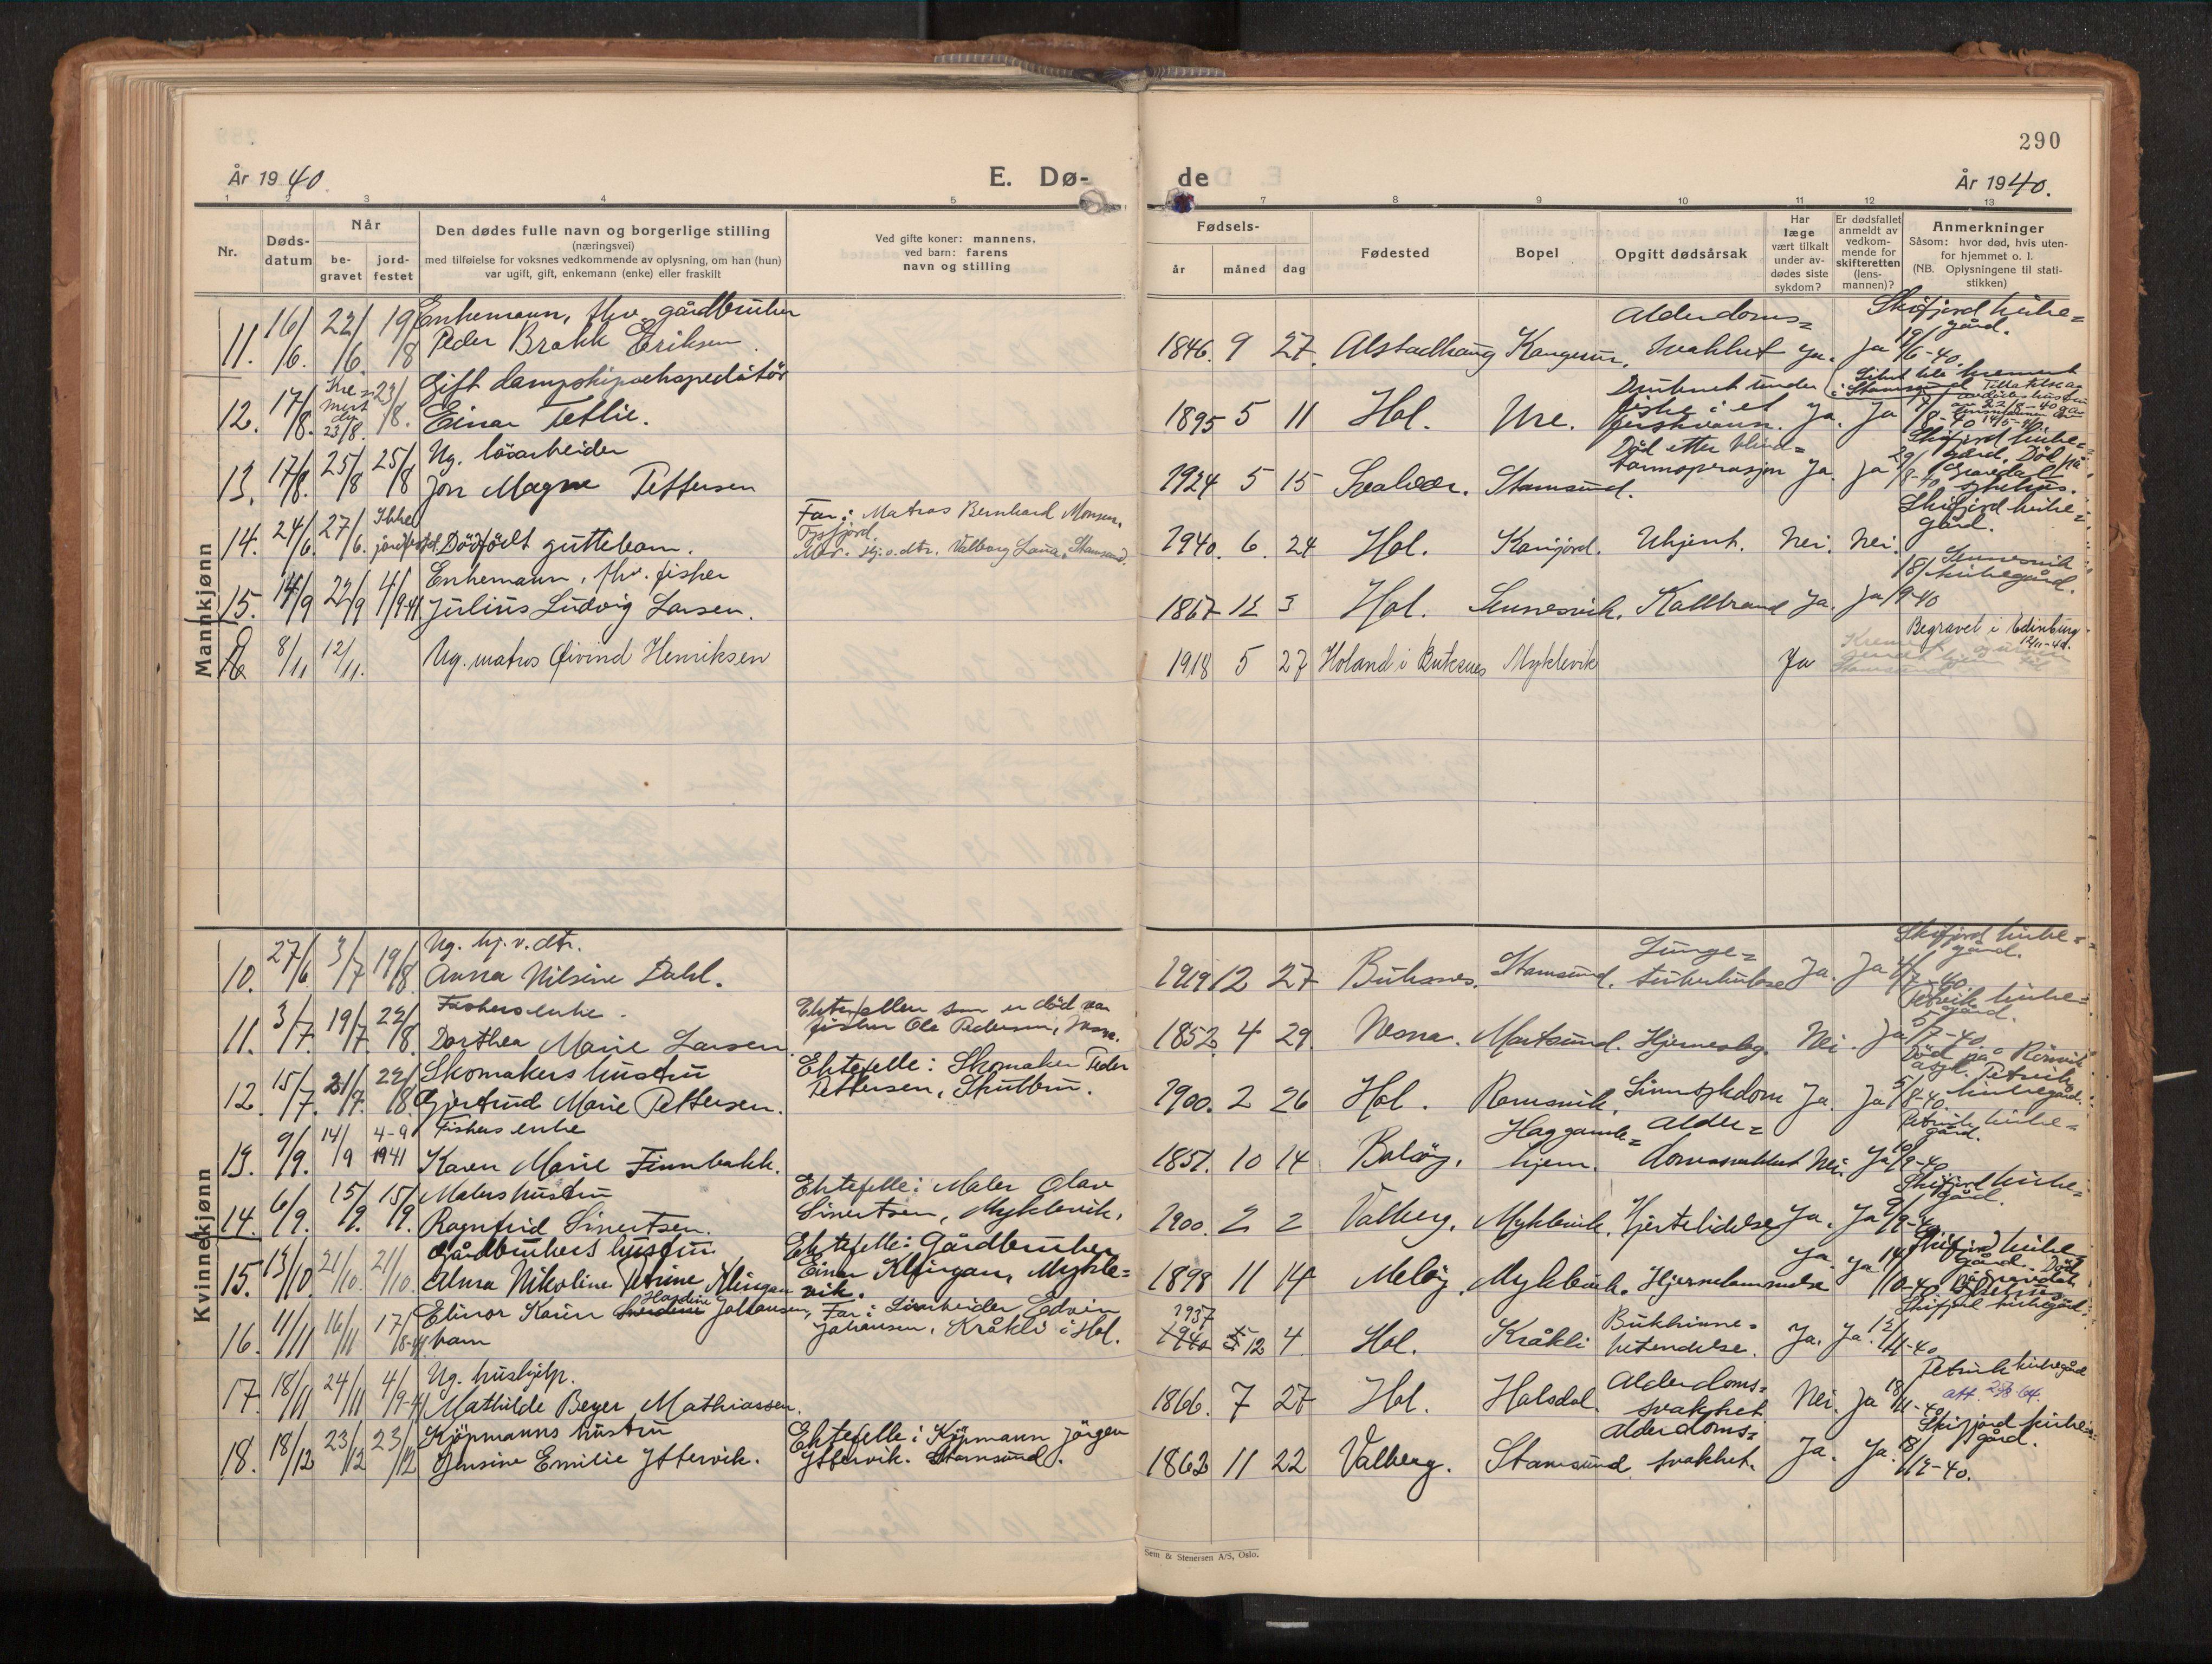 290
År 1940. E. Dø-
de År 1940.
1 2 3 4 5
7 8 9 10 11 12 13
Nr. Døds-datum Når be-gravet jord-festet Den dødes fulle navn og borgerlige stilling
(næringsvei)
med tilføielse for voksnes vedkommende av oplysning, om han (hun)
var ugift, gift, enkemann (enke) eller fraskilt
Ved gifte koner: mannens,
ved barn: farens
navn og stilling
Fødsels- år måned dag Fødested Bopel Opgitt dødsårsak
Har læge vært tilkalt under av-dødes siste sykdom?
Er dødsfallet anmeldt av vedkom-mende for skifteretten (lens-mannen)?
Anmerkninger
Såsom: hvor død, hvis uten-
for hjemmet o. l.
(NB. Oplysningene til stati-
stikken)
Mannkjønn
11. 16/6. 22/6. 19/8 Enkemann, fhv. gårdbruker
Peder Brakk Eriksen.
1846. 9 27 Alstadhaug Alderdoms= svakhet ja. ja 19/6-40. Skifjord kirke=gård.
12. 17/8. Kre=mert 23/8. 23/8. Gift dampskipsekspeditør
Einar Tetlie.
1895 5 11 Hol. Ure. Druknet under fiske i et ferskvann. ja. ja
13. 17/8. 25/8 25/8 Ug. løsarbeider
Jon Magne Pettersen
1924 5 15 Svolvær. Stamsund. Død etter blind=tarmoperasjon ja. ja 29/8-40 Skifjord kirke=gård. Død på Gravdal sykehus.
14. 24/6. 27/6. Ikke jordfestet. Dødfødt guttebarn.
Far: Matros Bernhard Monsen,
Tysfjord.
Mor: Hj.v.dtr. Valborg Stamsund.
1940. 6. 24 Hol. Ukjent. Nei. Nei. Skifjord kirke=gård.
15. 14/9 22/9 4/9-41 Enkemann, fhv. fisker
Julius Ludvig Larsen.
1867 12 3 Hol. Sennesvik. Kallbrand ja. ja 18/9-40 Sennesvik kirkegård.
16 8/11 12/11. Ug. matros Øivind Henriksen
1918 5 27 Holand i Buksnes Myklevik Ja Begravet i Edinburg 12/11-40.
Kvinnekjønn
10. 27/6 3/7 19/8 Ug. hj.v.dtr.
Anna Nilsine Dahl.
1919 12 27 Buksnes. Stamsund. Lunge=tuberkulose Ja. Ja 4/7-40 Skifjord kirke=gård.
11. 3/7. 19/7. 22/8. Fiskers enke.
Dorthea Marie Larsen.
Ektefellen som er død var
fisker Ole Pedersen,
1852. 4 29. Nesna. Mortsund. Hjerneslag. Nei. Ja 5/7-40. Petvik kirke=gård.
12. 15/7. 21/7. 22/8. Skomakers hustru
Gjertrud Marie Pettersen.
Ektefelle: Skomaker Peder
Pettersen, Skulbru.
1900. 2 26 Hol. Ramsvik. Sinnsykdom Ja. Ja 5/8-40. Død på Rønvik asyl. Petvik kirkegård.
13. 9/9. 14/9 4-9 1941 Fiskers enke
Karen Marie Finnbakk.
1851. 10 14 Haggamle=hjem. Alder=domssvakhet Nei. Ja Petvik kirke=gård.
14. 6/9. 15/9. 15/9. Malers hustru
Ragnfrid Sivertsen.
Ektefelle: Maler Olav
Sivertsen, Myklevik.
1900. 2 2 Valberg. Myklevik. Hjertelidelse Ja. Ja 9/9-40 Skifjord kirke=gård.
15. 13/10. 21/10. 21/10. Gårdbrukers hustru
Alma Nikoline Petrine Klingan
Ektefelle: Gårdbruker
Einar Klingan, Mykle=
vik.
1898 11 14 Meløy. Myklevik. Hjernelammelse Ja Ja 14/10-40. Skifjord kirke=gård. Død på Gravdal sykehus.
16. 11/11 16/11 17/8-41 Elinor Karin Hardine Johansen,
barn
Far: Løsarbeider Edvin
Johansen, Kråkli i Hol.
1937 1940 12 4 Hol. Kråkli Bukhinne=betendelse. Ja. Ja. 12/11-40 Skifjord kirkegård.
17. 18/11 24/11 4/9-41 Ug. hushjelp.
Mathilde Beyer Mathiassen.
1866. 7 27 Hol. Holsdal. Alderdoms=svakhet Nei. Ja 18/11-40. Petvik kirkegård
att. 28/8-64.
18. 18/12 23/12 23/12 Kjøpmanns hustru
Jensine Emilie Yttervik.
Ektefelle: Kjøpmann Jørgen
Yttervik. Stamsund.
1862 11 22 Valberg. Stamsund Alderdoms=svakhet. Ja. Ja. 18/12-40. Skifjord kirke=gård.
Sem & Stenersen A/S, Oslo.